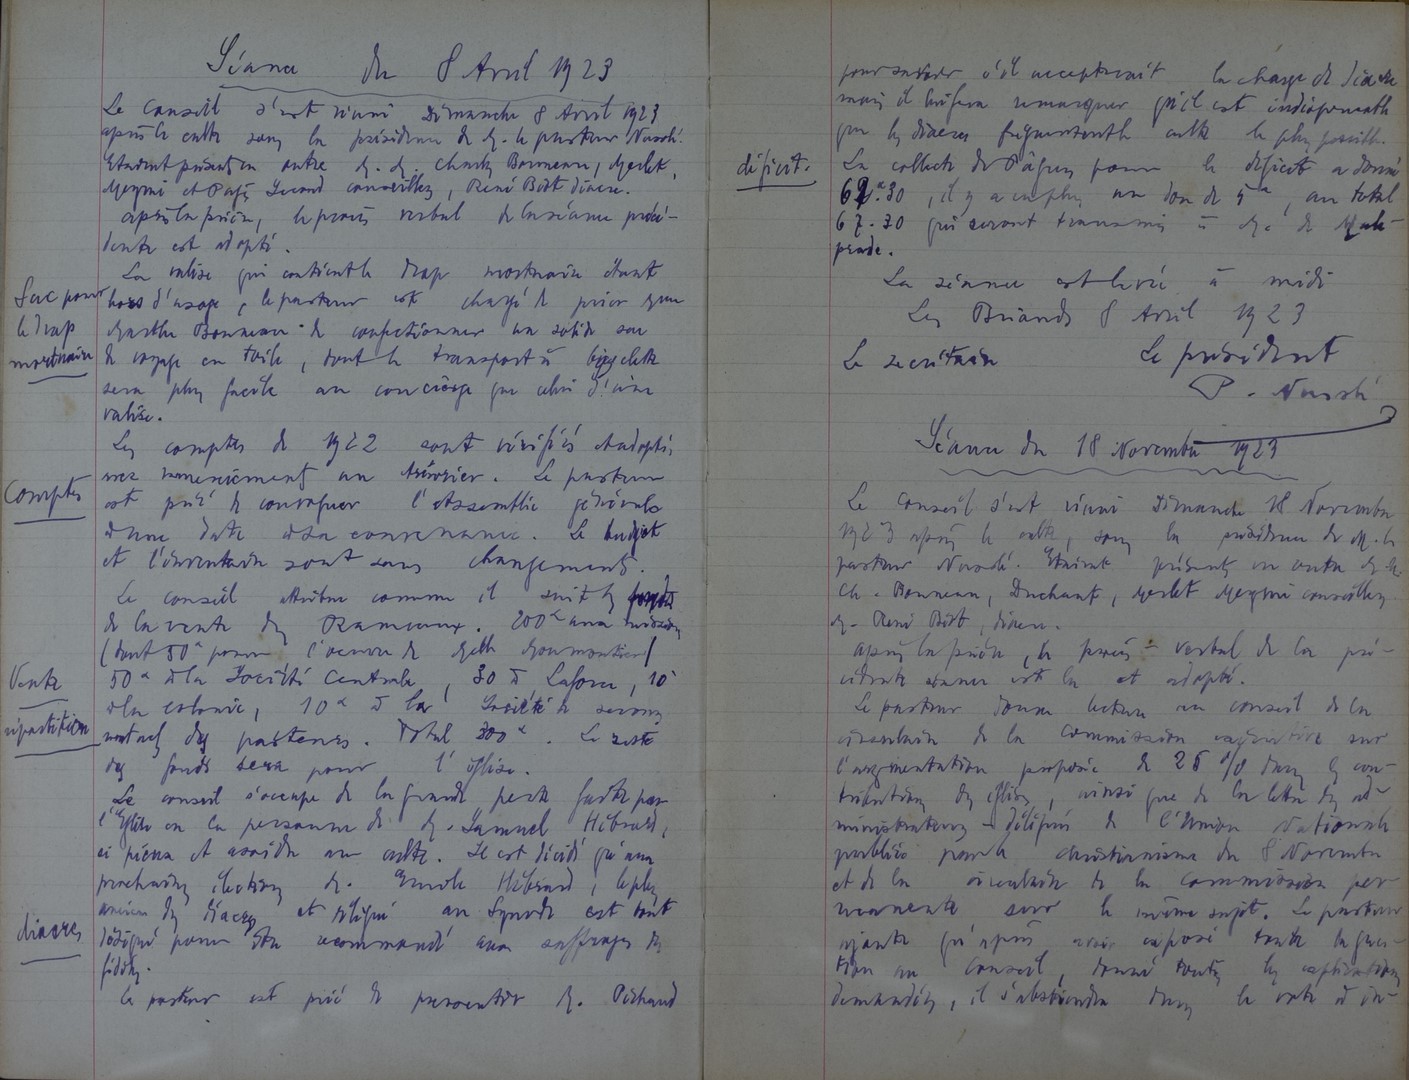 Séance du 8 Avril 1923
Le conseil s'est réuni Dimanche 8 Avril 1923
après le culte sous la présidence de M. le pasteur
Etaient présents en outre M. M. Charles Bonneau, Merlet,
Meymi et Second conseillers, René Bost diacre.
Après la prière, le procès verbal de la séance précé-
dente est adopté.
La valise qui contient le drap mortuaire étant
Sac pour
le drap
mortuaire
hors d'usage, le pasteur est chargé de prier
Marthe Bonneau de confectionner un solide sac
de voyage en toile, dont le transport à bicyclette
sera plus facile au concierge que celui d'une
valise.
Comptes
Les comptes de 1922 sont vérifiés et adoptés,
avec remerciements au trésorier. Le pasteur
est prié de convoquer l'Assemblée générale
à une date à sa convenance. Le budget
et l'inventaire sont sans changements.
Le conseil attribue comme il suit les
de la vente des Rameaux. 200 aux missions
(dont 50 pour l'oeuvre de Melle
Vente
répartition
50 à la Société Centrale, 30 à Laforce, 10
à la colonie, 10 à la Société de secours
mutuels des pasteurs. Total 300. Le reste
des fonds sera pour l'église.
Le conseil s'occupe de la grande perte faite par
l'Eglise en la personne de M. Samuel Hébrard,
si pieux et assidu au culte. Il est décidé qu'aux
prochaines élections M. Emile Hébrard, le plus
ancien des diacres et délégué au Synode est tout
diacres
désigné pour être recommandé aux suffrages des
fidèles.
Le pasteur est prié de pressentir M. Pichaud
pour savoir s'il accepterait la charge de diacre
mais il lui fera remarquer qu'il est indispensable
que les diacres fréquentent le culte le plus possible.
déficit.
La collecte de Pâques pour le déficit a donné
62.30, il y a en plus un don de 5, au total
67.30 qui seront transmis à M. de
prade.
La séance est levée à midi
Les Briands 8 Avril 1923
Le secrétaire Le président
Séance du 18 Novembre 1923
Le conseil s'est réuni Dimanche 18 Novembre
1923 après le culte, sous la présidence de M. le
pasteur. Etaient présents en outre M. M.
Ch. Bonneau, Duchant, Merlet Meymi conseillers
M. René Bost, diacre.
Après la prière, le procès-verbal de la pré-
cédente séance est lu et adopté.
Le pasteur donne lecture au conseil de la
circulaire de la Commission exécutive sur
l'augmentation proposée de 25 % dans les con-
tributions des églises, ainsi que de la lettre des ad-
ministrateurs-délégués de l'Union Nationale
publiée par le christianisme du 8 Novembre
et de la circulaire de la commission per-
manente sur le même sujet. Le pasteur
ajoute qu'après avoir exposé toute la ques-
tion au Conseil, donné toutes les explications
demandées, il s'abstiendra dans le vote à in-